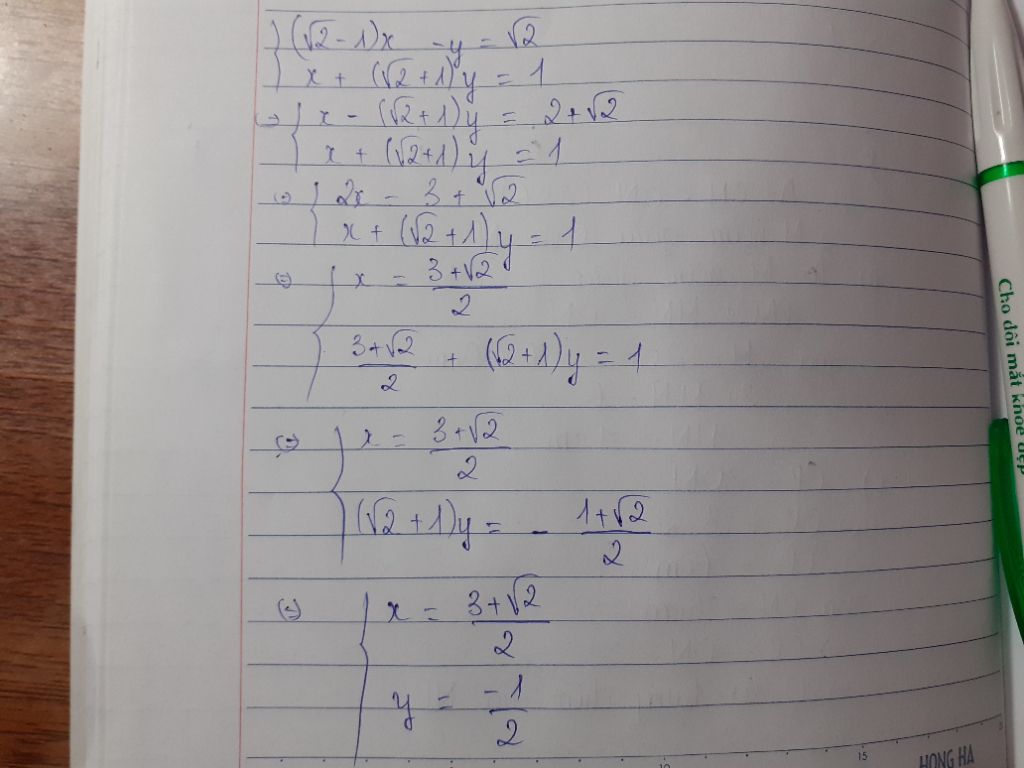 (√2 - 1)x - y = √2
x + (√2 + 1)y = 1
⇔ x - (√2 + 1)y = 2 + √2
x + (√2+1)y = 1
⇔ 2x = 3 + √2
x + (√2 + 1)y = 1
⇔ x = (3+√2)/2
(3+√2)/2 + (√2+1)y = 1
⇔ x = (3+√2)/2
(√2 + 1)y = - (1+√2)/2
⇔ x = (3+√2)/2
y = -1/2
Cho đôi mắt khoẻ đẹp
10 15
HONG HA